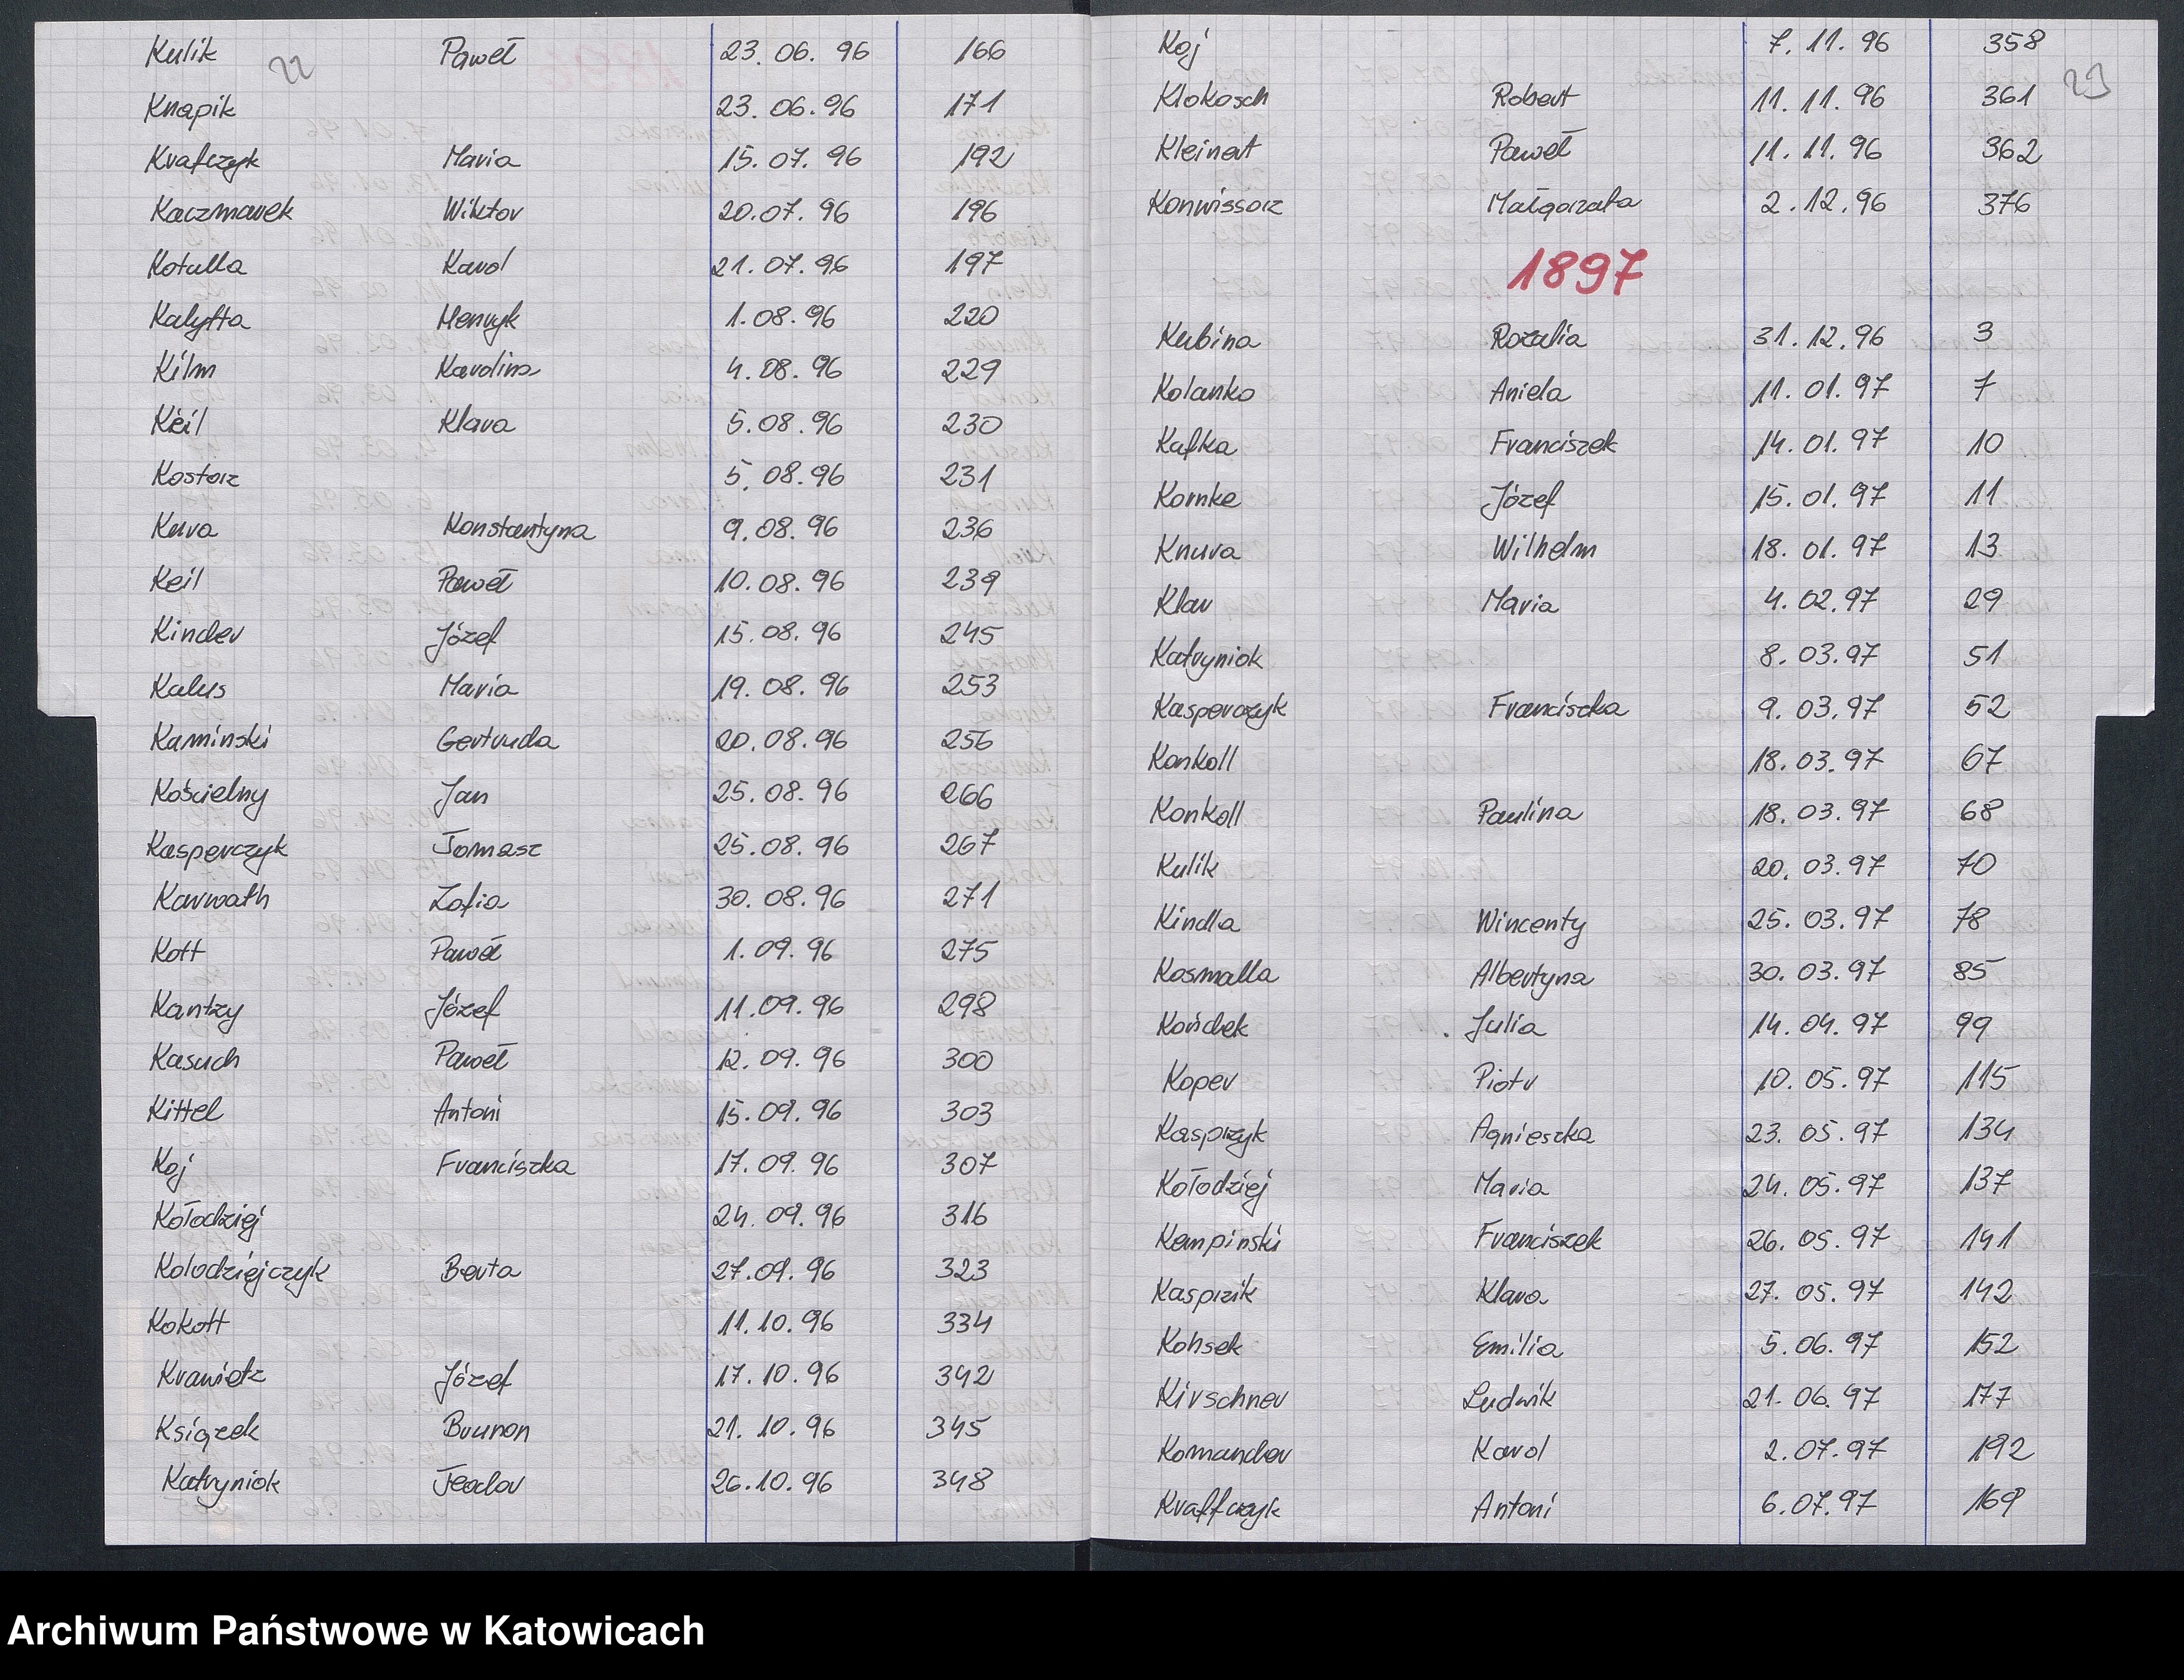 22
Kulik Paweł 23.06.96 166
Knapik 23.06.96 171
Krafczyk Maria 15.07.96 192
Kaczmarek Wiktor 20.07.96 196
Kotulla Karol 21.07.96 197
Kalytta Henryk 1.08.96 220
Kilm Karolina 4.08.96 229
Keil Klara 5.08.96 230
Kostorz 5.08.96 231
Kura Konstantyna 9.08.96 236
Keil Paweł 10.08.96 239
Kinder Józef 15.08.96 245
Kalus Maria 19.08.96 253
Kaminski Gertruda 20.08.96 256
Kościelny Jan 25.08.96 266
Kasperczyk Tomasz 25.08.96 267
Karwath Zofia 30.08.96 271
Kott Paweł 1.09.96 275
Kantzy Józef 11.09.96 298
Kasuch Paweł 12.09.96 300
Kittel Antoni 15.09.96 303
Koj Franciszka 17.09.96 307
Kołodziej 24.09.96 316
Kolodziejczyk Berta 27.09.96 323
Kokott 11.10.96 334
Krawietz Józef 17.10.96 342
Książek Brunon 21.10.96 345
Katryniok Teodor 26.10.96 348
23
Koj 7.11.96 358
Klokosch Robert 11.11.96 361
Kleinert Paweł 11.11.96 362
Konwissorz Małgorzata 2.12.96 376
1897
Kubina Rozalia 31.12.96 3
Kolanko Aniela 11.01.97 7
Kafka Franciszek 14.01.97 10
Kornke Józef 15.01.97 11
Knura Wilhelm 18.01.97 13
Klar Maria 4.02.97 29
Katryniok 8.03.97 51
Kasperczyk Franciszka 9.03.97 52
Konkoll 18.03.97 67
Konkoll Paulina 18.03.97 68
Kulik 20.03.97 70
Kindla Wincenty 25.03.97 78
Kosmalla Albertyna 30.03.97 85
Kończek Julia 14.04.97 99
Koper Piotr 10.05.97 115
Kasprzyk Agnieszka 23.05.97 134
Kołodziej Maria 24.05.97 137
Kempinski Franciszek 26.05.97 141
Kasprzik Klara 27.05.97 142
Kohsek Emilia 5.06.97 152
Kirschner Ludwik 21.06.97 177
Komander Karol 2.07.97 192
Kraffczyk Antoni 6.07.97 169
Archiwum Państwowe w Katowicach